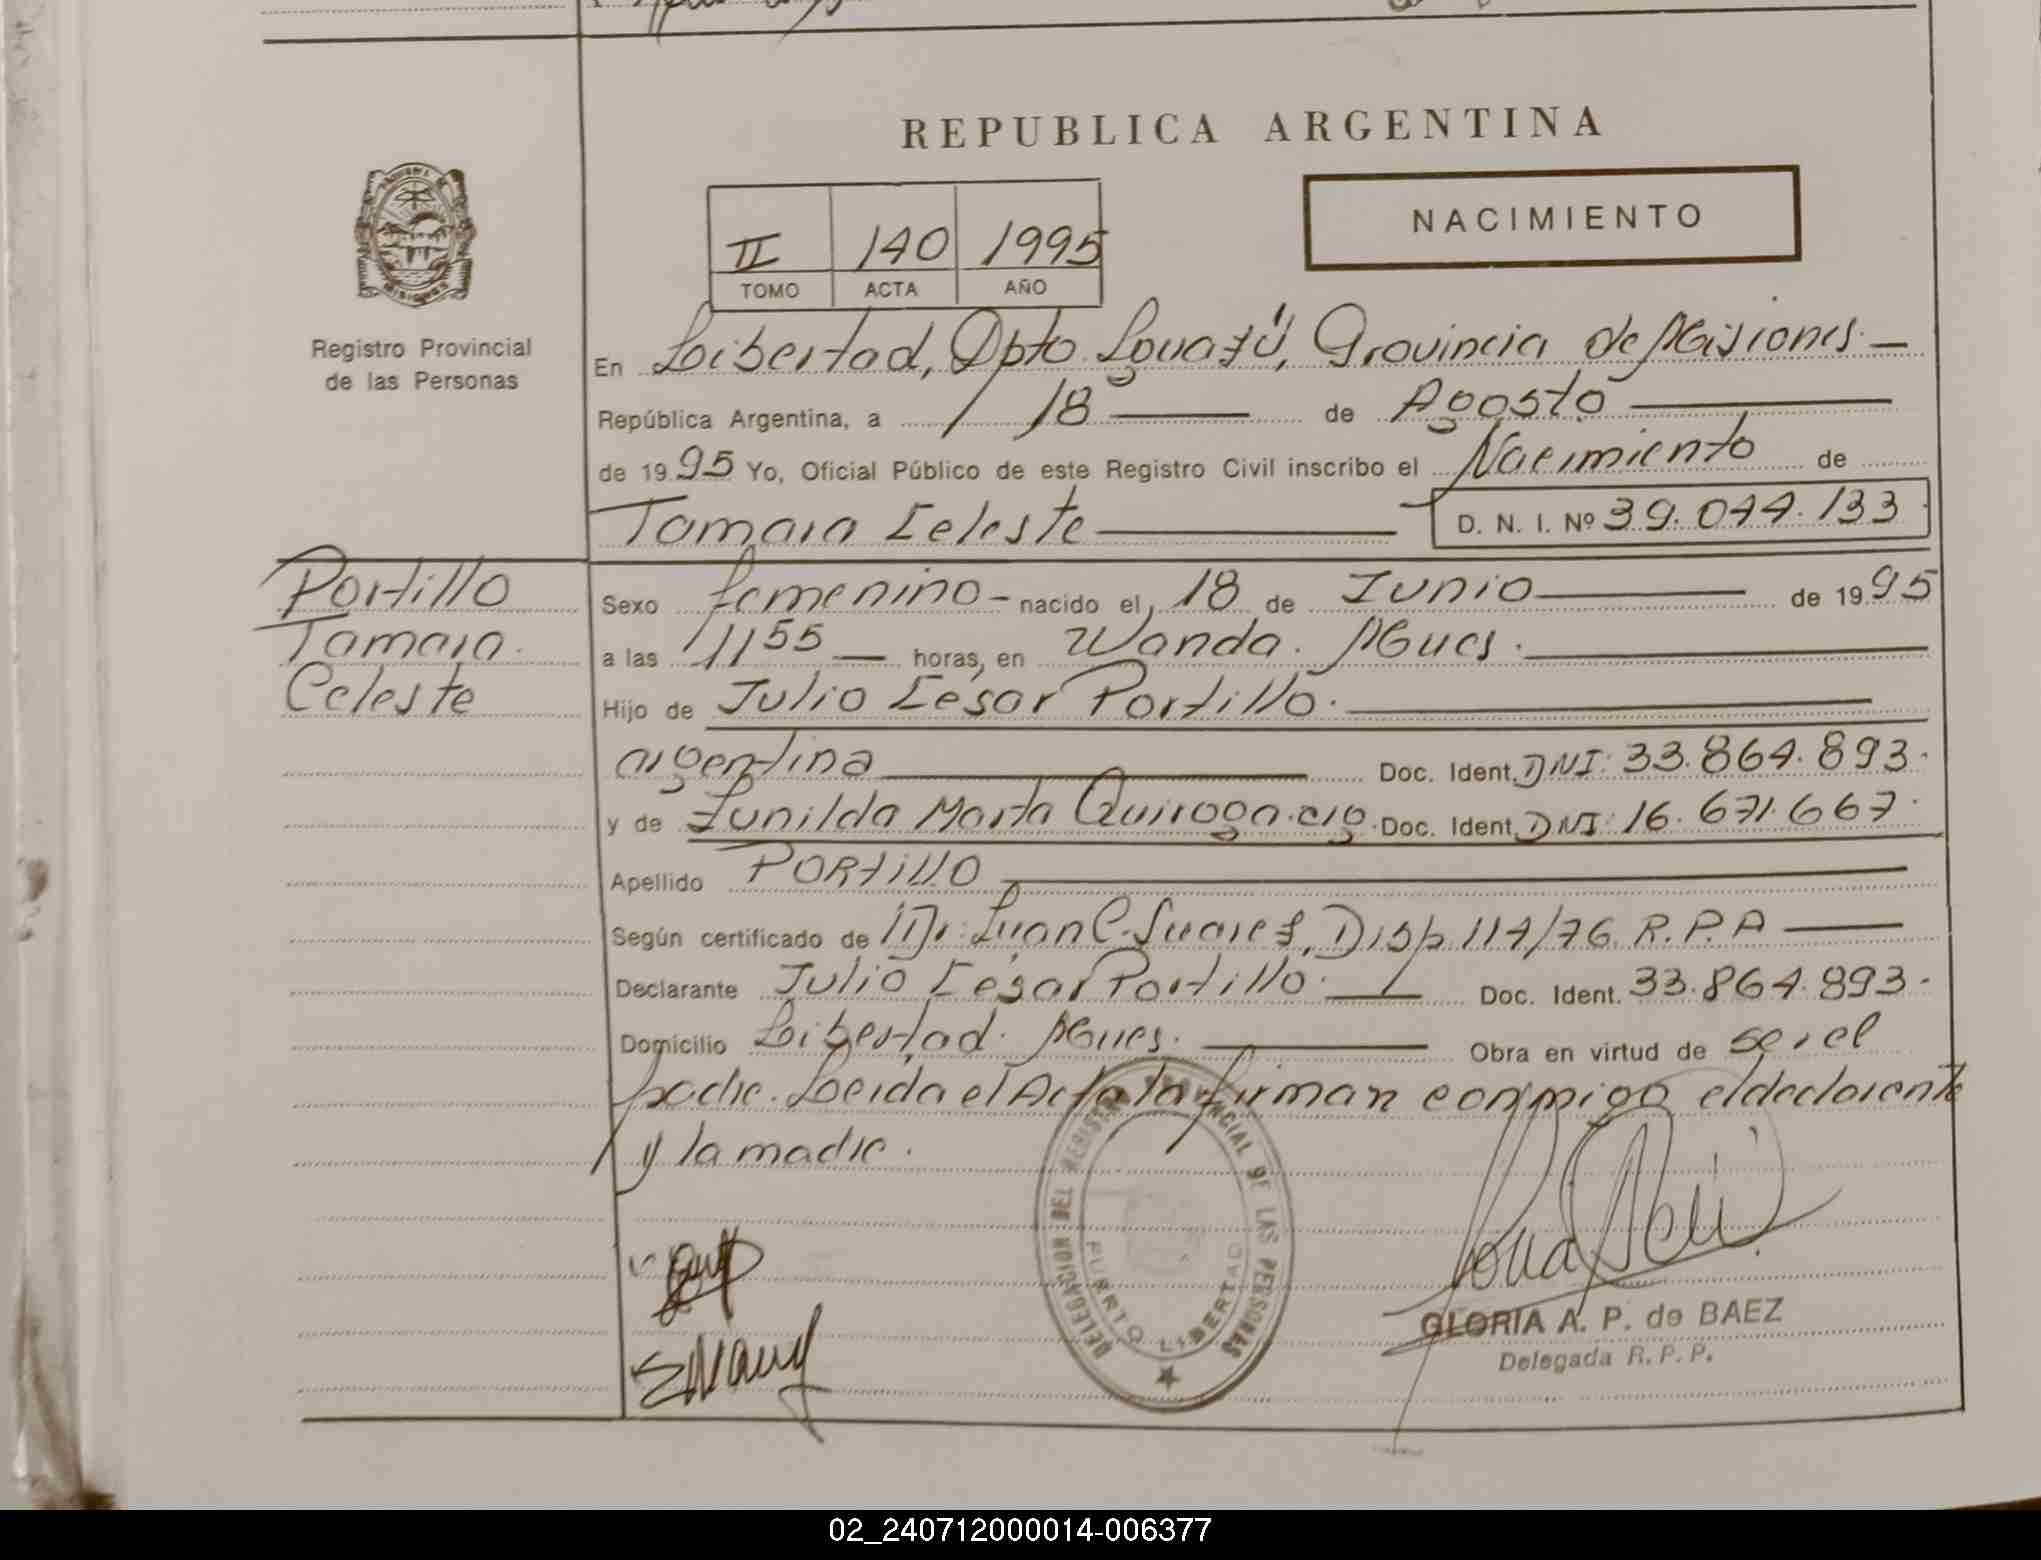 REPUBLICA ARGENTINA
NACIMIENTO
II 140 1995
TOMO ACTA AÑO
Registro Provincial
de las Personas
En Libertad, Dpto Iguazú, Provincia de Misiones.
República Argentina, a 18 de Agosto
de 1995 Yo, Oficial Público de este Registro Civil inscribo el Nacimiento de
Tamara Celeste D. N. I. Nº 39.044.133
Portillo
Tamara
Celeste
Sexo femenino - nacido el, 18 de Junio de 1995
a las 1155 horas, en Wanda. Mnes.
Hijo de Julio Cesar Portillo.
argentina Doc. Ident. DNI: 33.864.893.
y de Lunilda Marta Quiroga. arg. Doc. Ident. DNI: 16.671.667.
Apellido PORtillO
Según certificado de Dr. Juan C. Suarez, Disp. 117/76 R.P.A
Declarante Julio Cesar Portillo. Doc. Ident. 33.864.893.
Domicilio Libertad. Mnes. Obra en virtud de ser el
padre. Leida el Acta la firman conmigo el declarante
y la madre.
DELEGACION DEL REGISTRO PROVINCIAL DE LAS PERSONAS
PUERTO LIBERTAD
GLORIA A. P. de BAEZ
Delegada R. P. P.
02_240712000014-006377